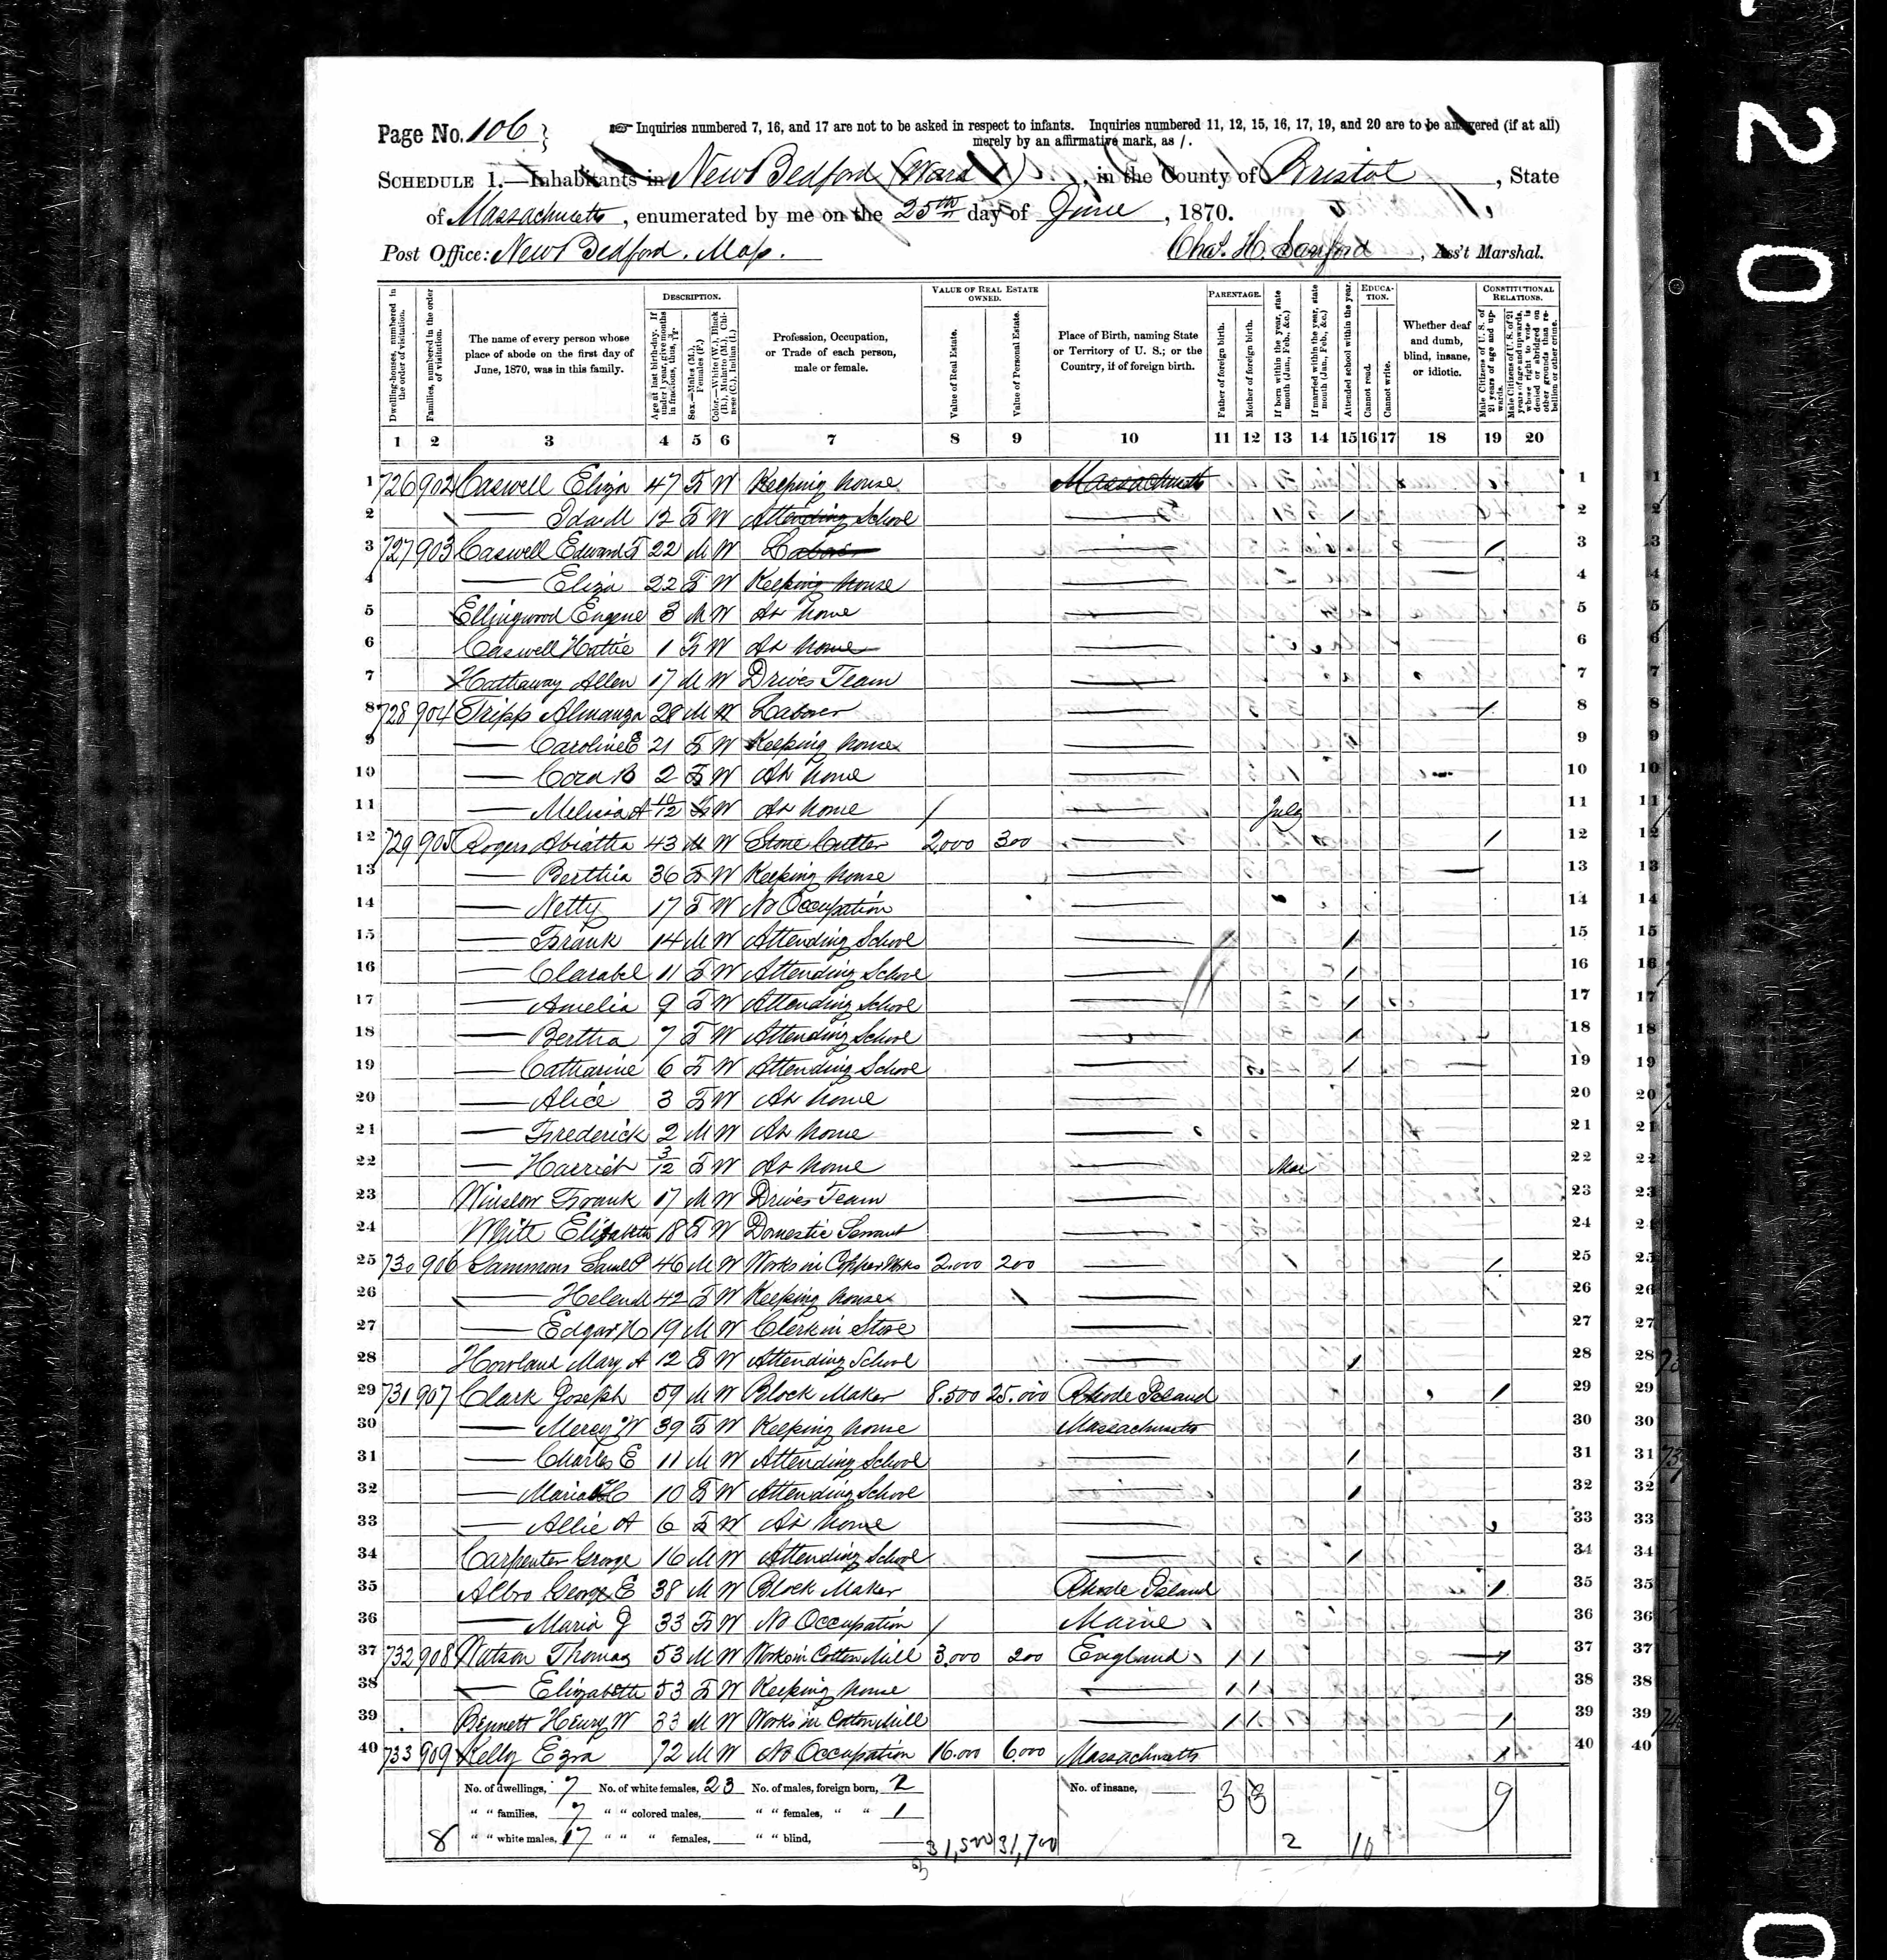 Page No. 106
Inquiries numbered 7, 16, and 17 are not to be asked in respect to infants. Inquiries numbered 11, 12, 15, 16, 17, 19, and 20 are to be answered (if at all)
merely by an affirmative mark, as /.
Schedule 1.—Inhabitants in New Bedford (Ward 1), in the County of Bristol, State
of Massachusetts, enumerated by me on the 25th day of June, 1870.
Post Office: New Bedford, Mass.
Chas. H. Sanford, Ass't Marshal.
Dwelling-houses, numbered in the order of visitation.
Families, numbered in the order of visitation.
The name of every person whose place of abode on the first day of June, 1870, was in this family.
Description.
Age at last birth-day. If under 1 year, give months in fractions, thus, 3/12
Sex.—Males (M.), Females (F.)
Color.—White (W.), Black (B.), Mulatto (M.), Chinese (C.), Indian (I.)
Profession, Occupation, or Trade of each person, male or female.
Value of Real Estate Owned.
Value of Real Estate.
Value of Personal Estate.
Place of Birth, naming State or Territory of U. S.; or the Country, if of foreign birth.
Parentage.
Father of foreign birth.
Mother of foreign birth.
If born within the year, state month (Jan., Feb., &c.)
If married within the year, state month (Jan., Feb., &c.)
Attended school within the year.
Education.
Cannot read.
Cannot write.
Whether deaf and dumb, blind, insane, or idiotic.
Constitutional Relations.
Male Citizens of U. S. of 21 years of age and upwards.
Male Citizens of U. S. of 21 years of age and upwards, whose right to vote is denied or abridged on other grounds than rebellion or other crime.
1 2 3 4 5 6 7 8 9 10 11 12 13 14 15 16 17 18 19 20
1 726 902 Caswell Eliza 47 F W Keeping house Massachusetts 1
2 — Ida M 12 F W Attending School — / 2
3 727 903 Caswell Edward T 22 M W Labor — / 3
4 — Eliza 22 F W Keeping house — 4
5 Ellingwood Eugene 3 M W At home — 5
6 Caswell Hattie 1 F W At home — 6
7 Hathaway Allen 17 M W Drives Team — 7
8 728 904 Tripp Almanza 28 M W Laborer — / 8
9 — Caroline E 21 F W Keeping house — 9
10 — Cora B 2 F W At home — 10
11 — Melissa A 10/12 F W At home — July 11
12 729 905 Rogers Abiatha 43 M W Stone Cutter 2,000 300 — / 12
13 — Berthia 36 F W Keeping house — 13
14 — Netty 17 F W No Occupation — 14
15 — Frank 14 M W Attending School — / 15
16 — Clarabel 11 F W Attending School — / 16
17 — Amelia 9 F W Attending School — / 17
18 — Bertha 7 F W Attending School — / 18
19 — Catharine 6 F W Attending School — / 19
20 — Alice 3 F W At home — 20
21 — Frederick 2 M W At home — 21
22 — Harriet 3/12 F W At home — Mar 22
23 Winslow Frank 17 M W Drives Team — 23
24 White Elizabeth 18 F W Domestic Servant — 24
25 730 906 Sammons Saml P 46 M W Works in Copper Works 2,000 200 — / 25
26 — Helen M 42 F W Keeping house — 26
27 — Edgar H 19 M W Clerk in Store — 27
28 Howland Mary A 12 F W Attending School — / 28
29 731 907 Clark Joseph 59 M W Block Maker 8,500 25,000 Rhode Island / 29
30 — Mercy W 39 F W Keeping house Massachusetts 30
31 — Charles E 11 M W Attending School — / 31
32 — Maria H 10 F W Attending School — / 32
33 — Allie A 6 F W At home — 33
34 Carpenter George 16 M W Attending School — / 34
35 Albro George E 38 M W Block Maker Rhode Island / 35
36 — Maria J 33 F W No Occupation Maine 36
37 732 908 Watson Thomas 53 M W Works in Cotton Mill 3,000 200 England / / / 37
38 — Elizabeth 53 F W Keeping house — / / 38
39 Bennett Henry W 33 M W Works in Cotton Mill — / / / 39
40 733 909 Kelly Ezra 72 M W No Occupation 16,000 6,000 Massachusetts / 40
No. of dwellings, 7 No. of white females, 23 No. of males, foreign born, 2 No. of insane, —
" " families, 7 " " colored males, — " " females, " " 1
8 " " white males, 17 " " " females, — " " blind, —
31,500 31,700 3 3 2 10 9
2 0
0